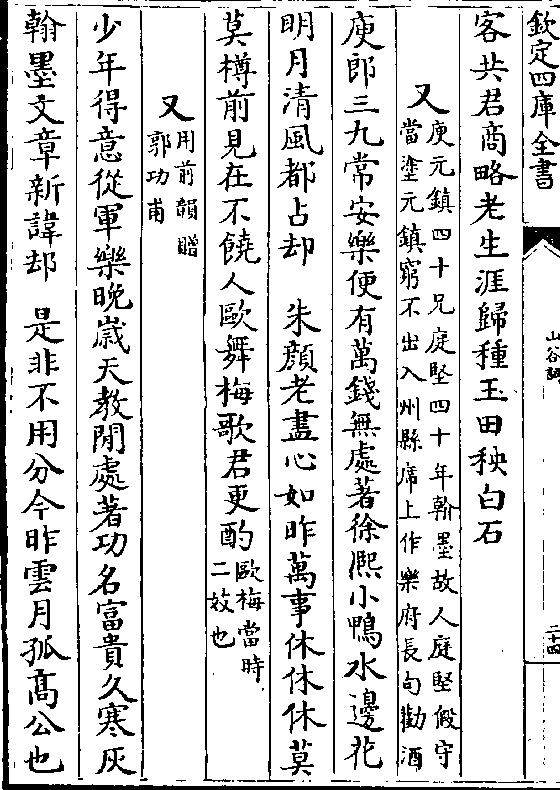 欽定四庫全書
山谷詞
二十四
客共君商略老生涯歸種玉田秧白石
又
庾元鎮四十兄庭堅四十年翰墨故人庭堅假守
當塗元鎮窮不出入州縣席上作樂府長句勸酒
庾郎三九常安樂便有萬錢無處著徐熈小鴨水邊花
明月清風都占却　朱顔老盡心如昨萬事休休休莫
莫樽前見在不饒人歐舞梅歌君更酌
歐梅當時
二妓也
又
用前韻贈
郭功甫
少年得意從軍樂晩歲天教閒處著功名富貴久寒灰
翰墨文章新諱却　是非不用分今昨雲月孤髙公也